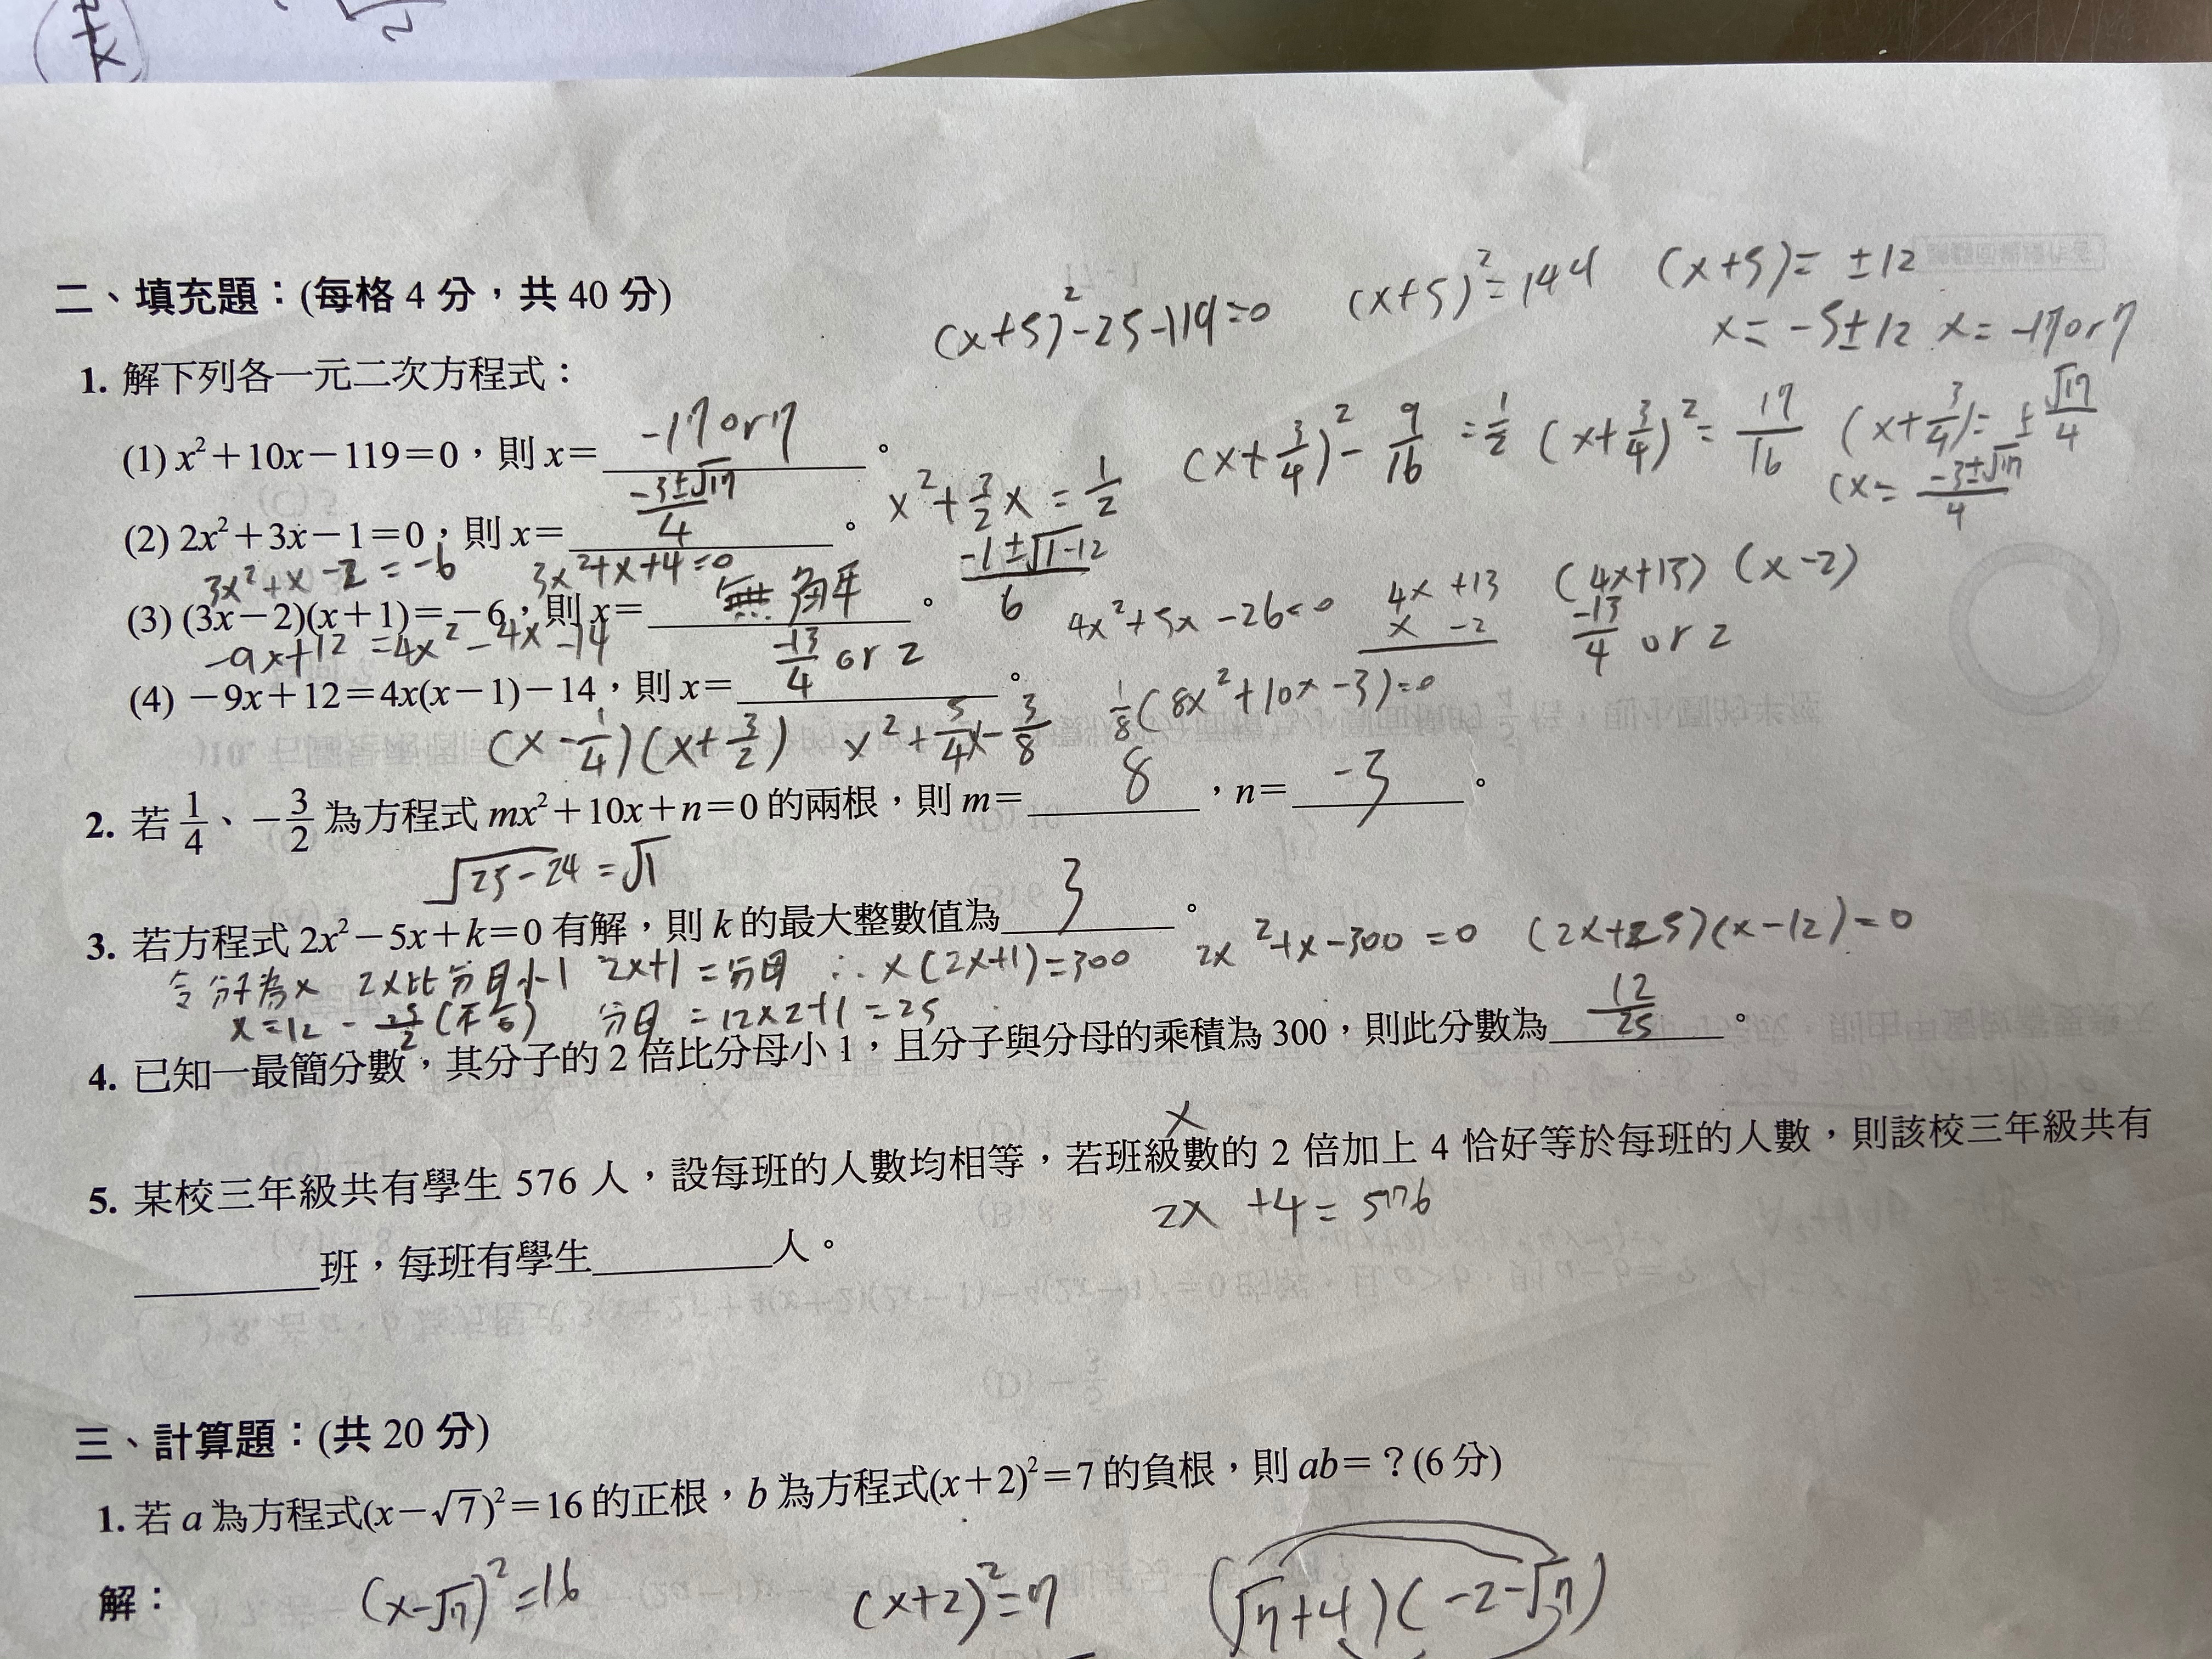 二、填充題：(每格 4 分，共 40 分)
(x+5)²-25-119=0 (x+5)²=144 (x+5)= ±12
x= -5±12 x= -17or7
1. 解下列各一元二次方程式：
(1) x²+10x-119=0，則 x= -17or7 。
x²+3/2x=1/2 (x+3/4)²-9/16=1/2 (x+3/4)²=17/16 (x+3/4)=±√17/4
(x= -3±√17/4
(2) 2x²+3x-1=0，則 x= -3±√17/4 。
3x²+x-2=-6 3x²+x+4=0 -1±√1-12/6
(3) (3x-2)(x+1)=-6，則 x= 無解 。
4x²+5x-26=0 4x +13 (4x+13) (x-2)
x -2 -13/4 or 2
-9x+12=4x²-4x-14
(4) -9x+12=4x(x-1)-14，則 x= -13/4 or 2 。
(x-1/4)(x+3/2) x²+5/4x-3/8 1/8(8x²+10x-3)=0
2. 若 1/4、-3/2 為方程式 mx²+10x+n=0 的兩根，則 m= 8 ，n= -3 。
√25-24=√1
3. 若方程式 2x²-5x+k=0 有解，則 k 的最大整數值為 3 。
令分子為x 2x比分母小1 2x+1=分母 ∴x(2x+1)=300 2x²+x-300=0 (2x+25)(x-12)=0
x=12 -25/2(不合) 分母=12×2+1=25
4. 已知一最簡分數，其分子的 2 倍比分母小 1，且分子與分母的乘積為 300，則此分數為 12/25 。
x
5. 某校三年級共有學生 576 人，設每班的人數均相等，若班級數的 2 倍加上 4 恰好等於每班的人數，則該校三年級共有
2x +4=576
班，每班有學生 人。
三、計算題：(共 20 分)
1. 若 a 為方程式(x-√7)²=16 的正根，b 為方程式(x+2)²=7 的負根，則 ab=？(6 分)
解： (x-√7)²=16 (x+2)²=7 (√7+4)(-2-√7)